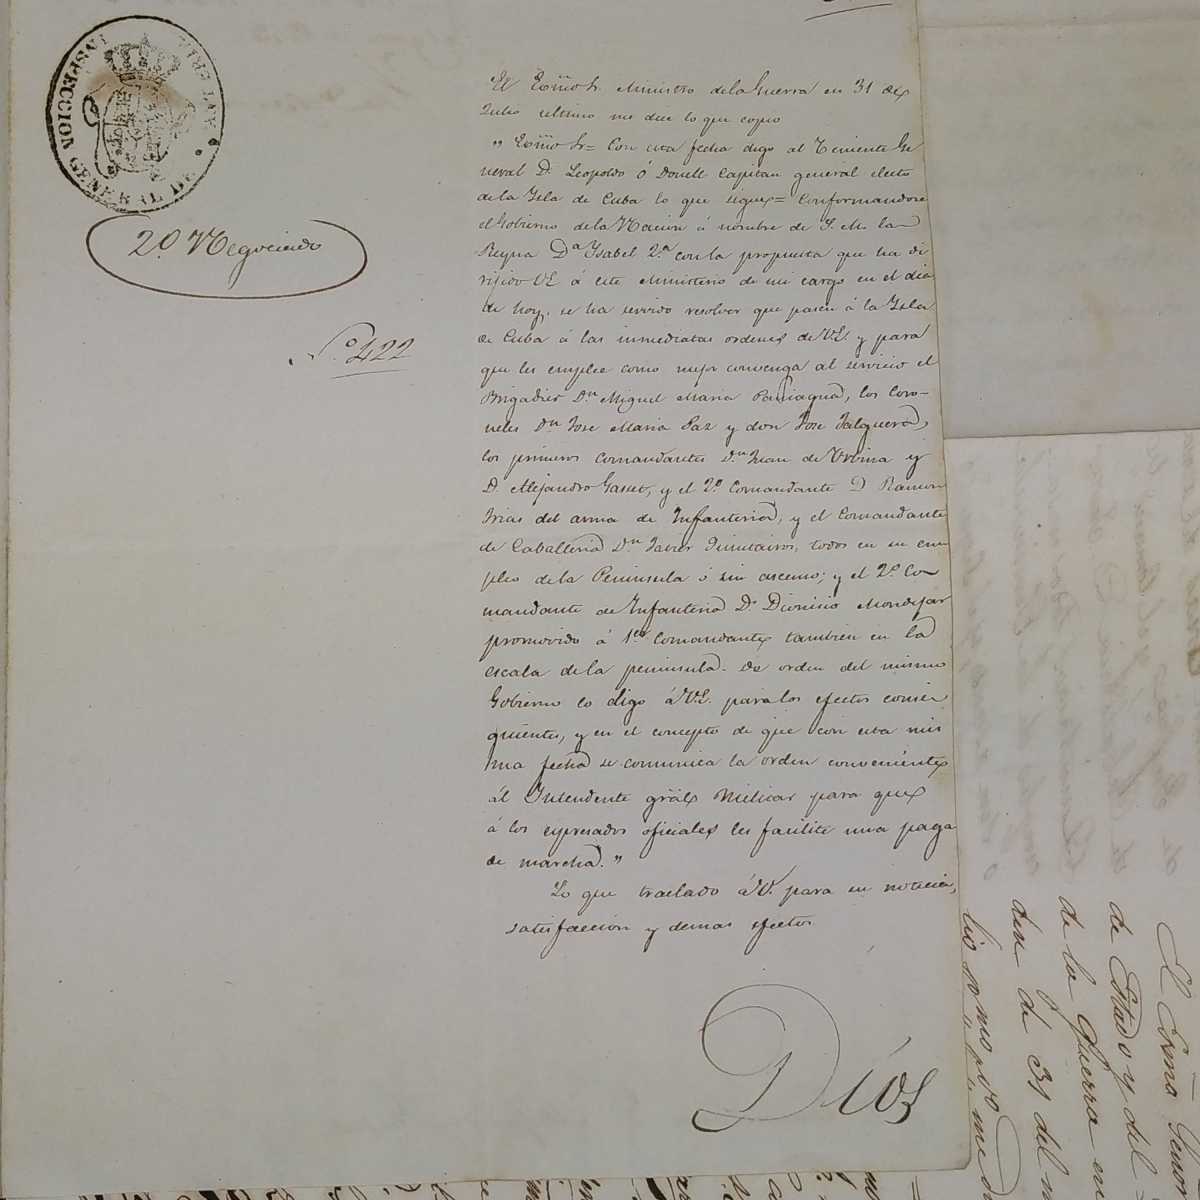 INSPECCION GENERAL DE
2.º Negociado
N.º 422
El Exmo Sr. Ministro de la Guerra en 31 de
Julio ultimo me dice lo que copio
" Exmo Sr = Con esta fecha digo al Teniente Ge
neral D. Leopoldo ó Donell Capitan general electo
de la Ysla de Cuba lo que sigue = Conformandose
el Gobierno de la Nacion á nombre de S. M. la
Reyna Dª Ysabel 2.ª con la propuesta que ha di
rijido VE á este Ministerio de mi cargo en el dia
de hoy, se ha servido resolver que pasen á la Ysla
de Cuba á las inmediatas ordenes de VE. y para
que les emplee como mejor convenga al servicio el
Brigadier Dn Miguel Maria Paniagua, los Coro-
neles Dn Jose Maria Paz y don Jose Falguera,
los primeros Comandantes Dn Juan de Urbina y
D. Alejandro Gasset, y el 2º Comandante D Ramon
Frias del arma de Infanteria, y el Comandante
de Caballeria Dn Javier todos en su em
pleo de la Peninsula ó sin ascenso; y el 2º Co-
mandante de Infanteria Dn Dionisio Mondejar
promovido á 1er Comandante tambien en la
escala de la peninsula. De orden del mismo
Gobierno lo digo á V.E. para los efectos consi
guientes, y en el concepto de que con esta mis
ma fecha se comunica la orden conveniente
al Intendente gral Militar para que
á los espresados oficiales les facilite una paga
de marcha. "
Lo que traslado á V. para su noticia,
satisfaccion y demas efectos
Dios
El Exmo Señor
de Estado y del
de la Guerra en
den de 31 del